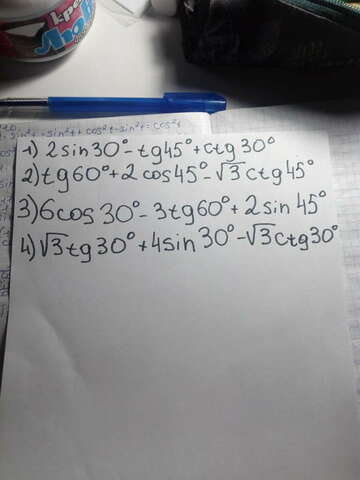 1) 2sin30° - tg45° + ctg30°
2) tg60° + 2cos45° - √3ctg45°
3) 6cos30° - 3tg60° + 2sin45°
4) √3tg30° + 4sin30° - √3ctg30°